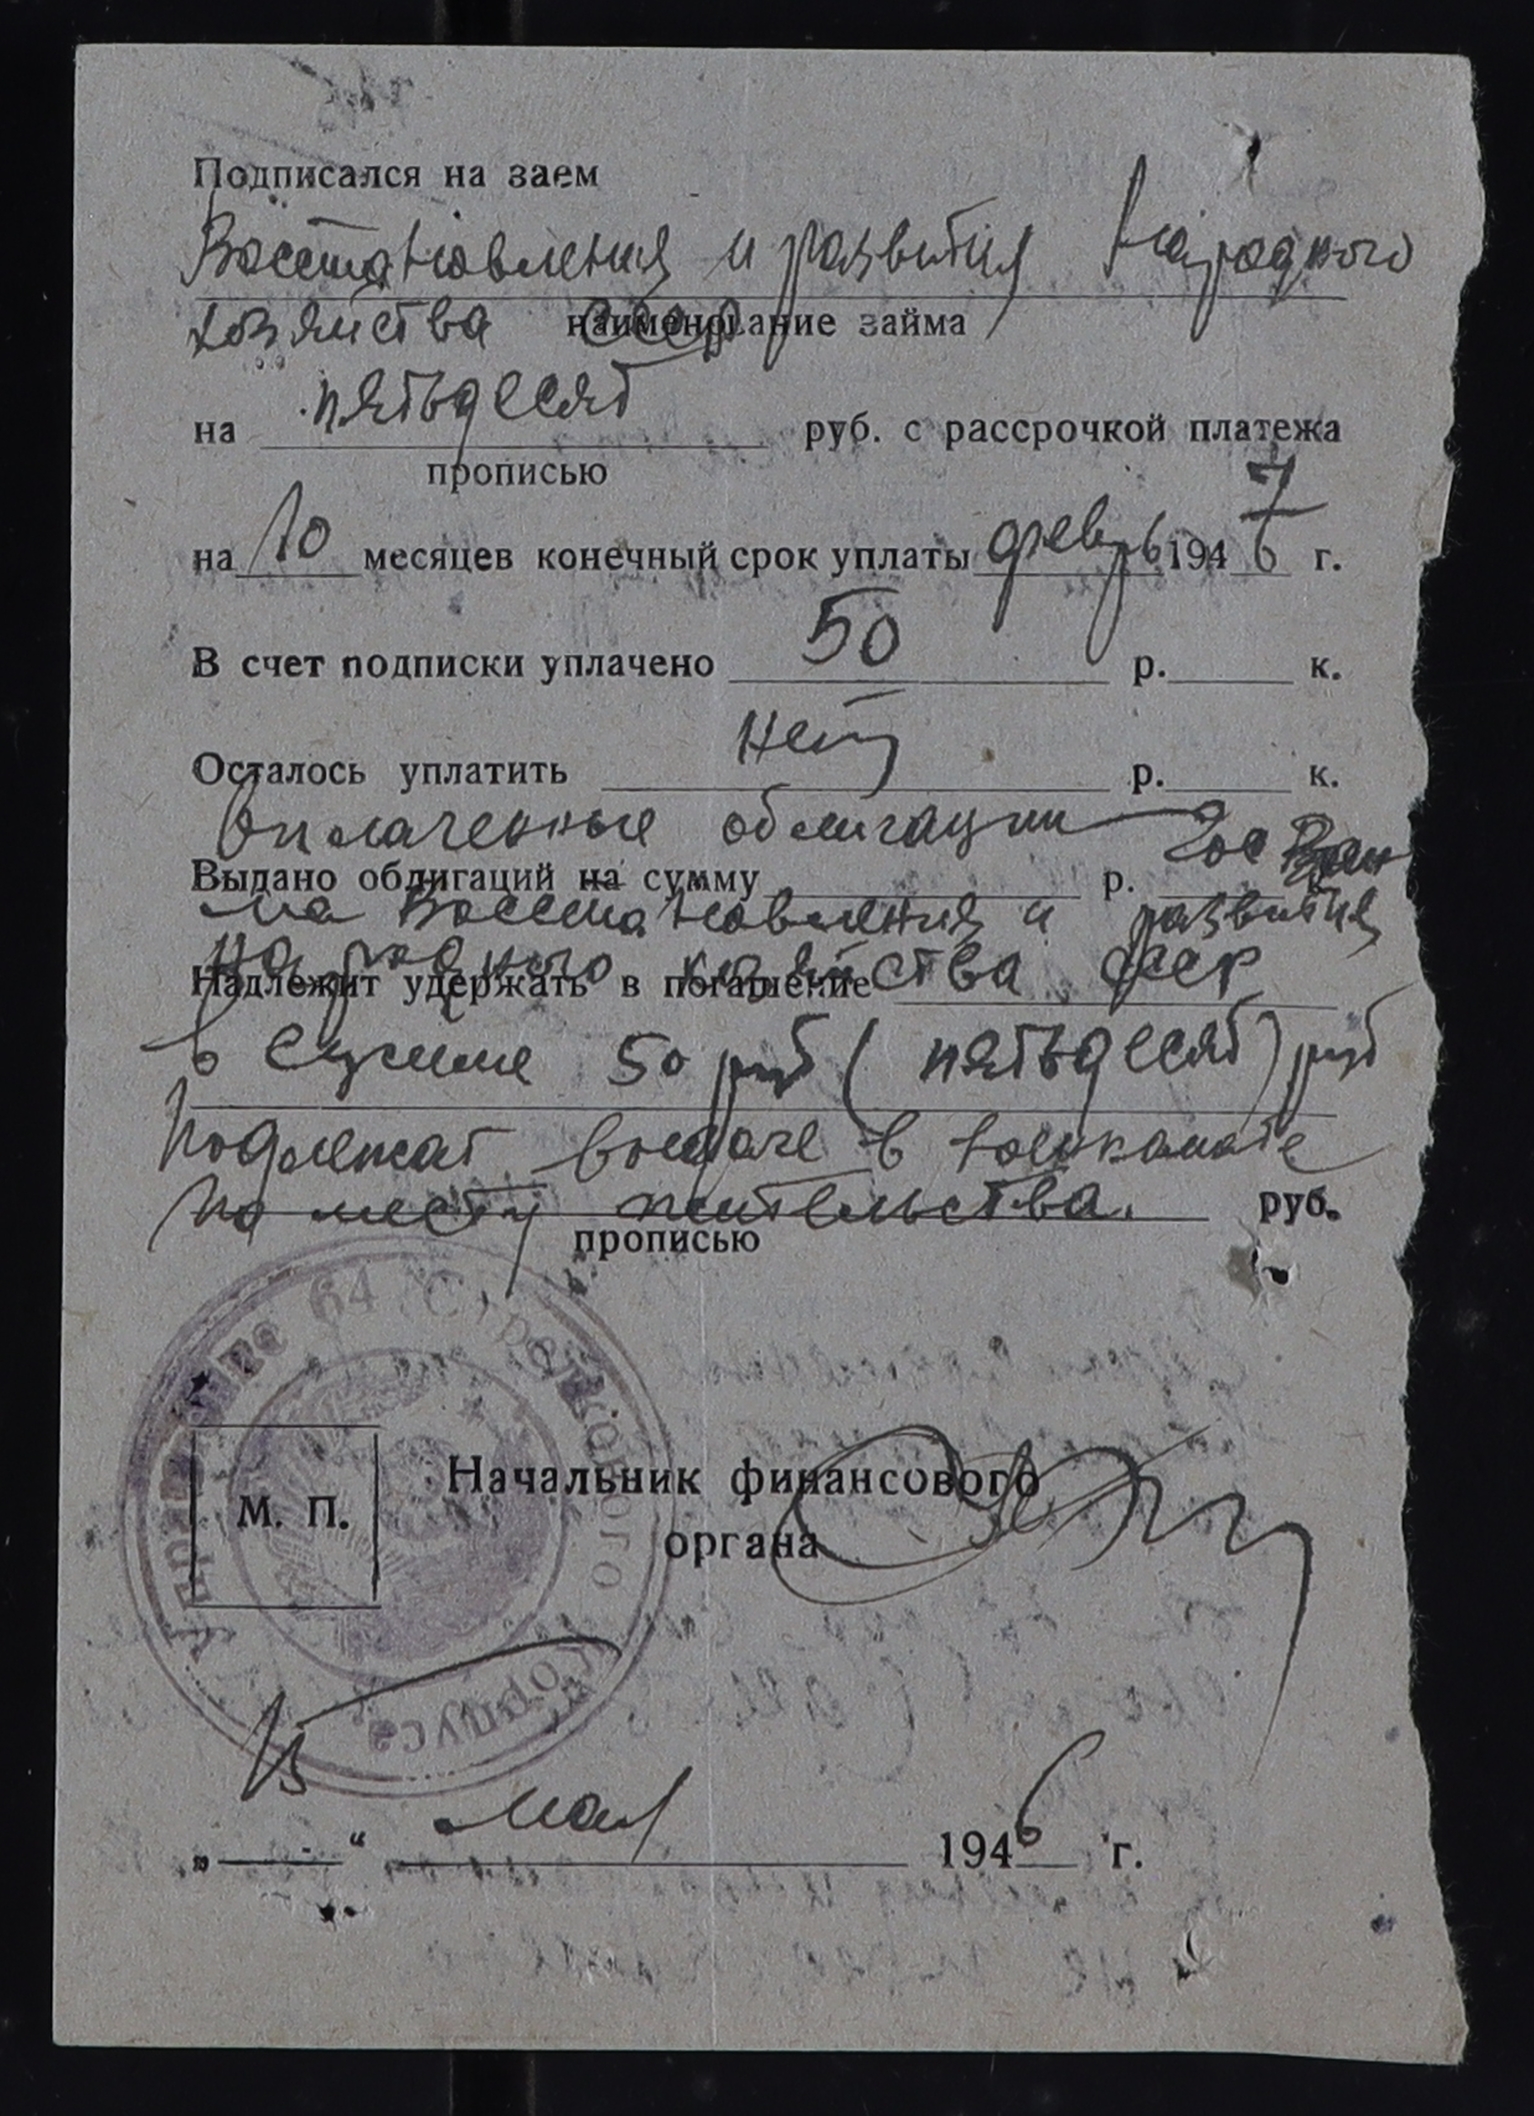 Подписался на заем
Восстановления и развития Народного
хозяйства СССР
наименование займа
на пятьдесят руб. с рассрочкой платежа
прописью
на 10 месяцев конечный срок уплаты февр 1946 г.
7
В счет подписки уплачено 50 р. к.
Осталось уплатить нет р. к.
Оплаченные облигации Гос
Выдано облигаций на сумму р.
Восстановления и развития
народного хозяйства СССР
Надлежит удержать в погашение
в сумме 50 руб (пятьдесят) руб
Подлежат выдаче в военкомате
по месту жительства. руб.
прописью
Управление 64 Стрелкового Корпуса
М. П.
Начальник финансового
органа
„ 13 “ мая 1946 г.